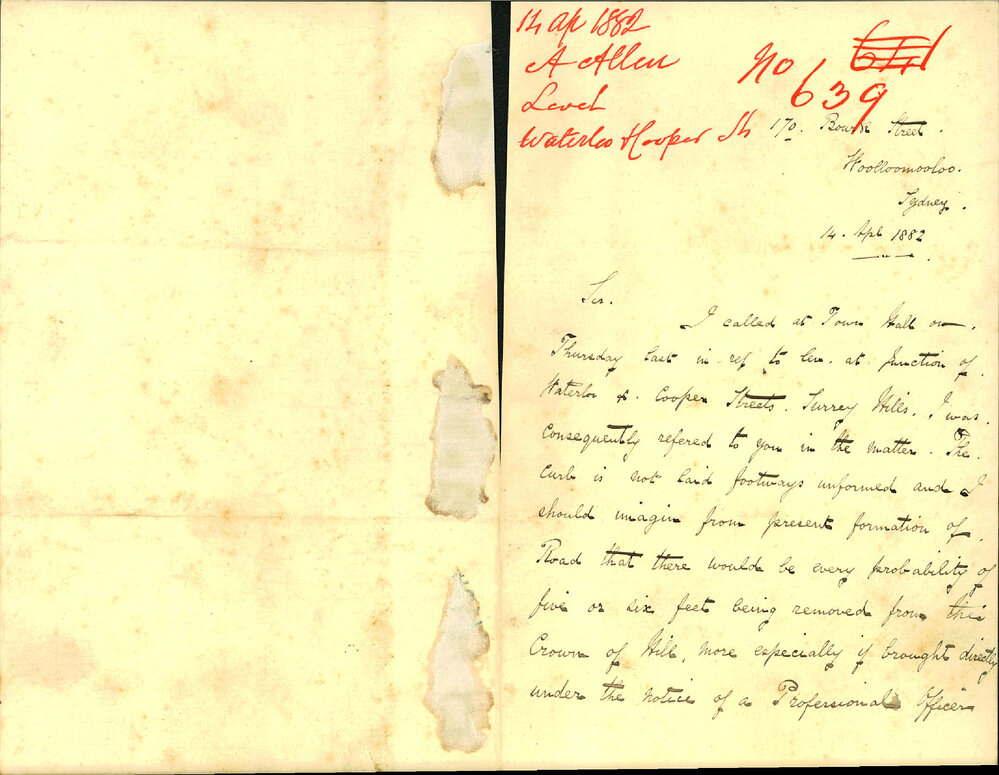 14 ap 1882
A Allen
Level
Waterloo & Cooper St
No 641
639
170. Bourke Street.
Woolloomooloo.
Sydney.
14. Apl 1882
Sir.
I called at Town Hall on.
Thursday last in ref to lev. at junction of.
Waterloo & Cooper Streets. Surrey Hills. I was.
consequently refered to you in the matter. The.
curb is not laid footways unformed and I
should imagin from present formation of.
Road that there would be every probability of
five or six feet being removed from this
Crown of Hill, more especially if brought directly
under the notice of a Professional Officer